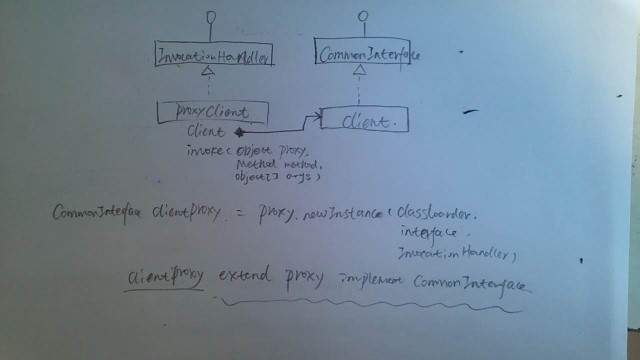 InvocationHandler
CommonInterface
proxyClient
client.
client
invoke( Object proxy,
Method method,
Object[] args)
CommonInterface clientProxy. = proxy.newInstance( classloarder.
interface.
InvocationHandler)
clientproxy extend proxy implement CommonInterface